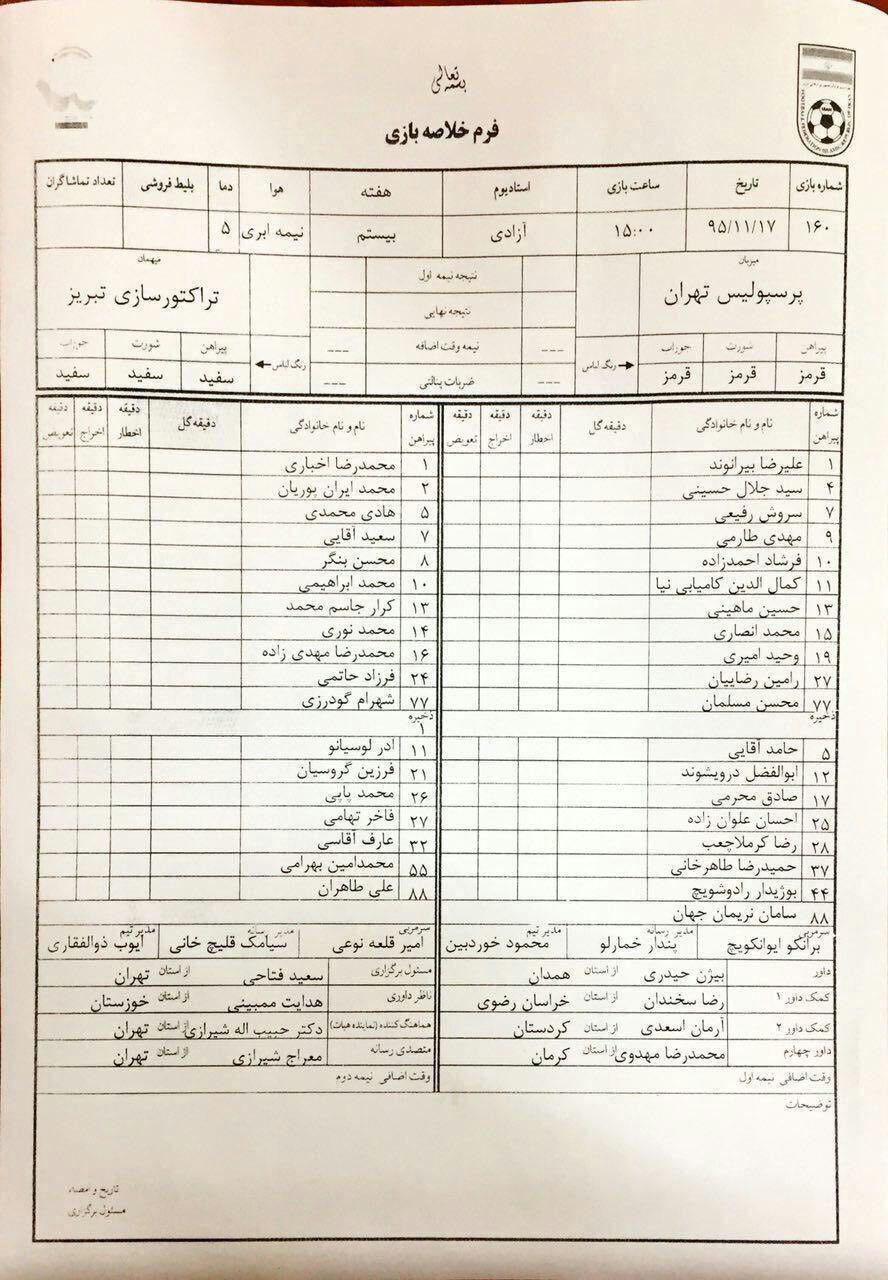 بسمه تعالی
فرم خلاصه بازی
FOOTBALL FEDERATION ISLAMIC REPUBLIC OF IRAN
شماره بازی تاریخ ساعت بازی استادیوم هفته هوا دما بلیط فروشی تعداد تماشاگران
۱۶۰ ۹۵/۱۱/۱۷ ۱۵:۰۰ آزادی بیستم نیمه ابری ۵
میزبان
پرسپولیس تهران
پیراهن شورت جوراب
قرمز قرمز قرمز
رنگ لباس
نتیجه نیمه اول
نتیجه نهایی
--- نیمه وقت اضافه ---
--- ضربات پنالتی ---
میهمان
تراکتورسازی تبریز
رنگ لباس
پیراهن شورت جوراب
سفید سفید سفید
شماره پیراهن نام و نام خانوادگی دقیقه گل دقیقه اخطار دقیقه اخراج دقیقه تعویض
۱ علیرضا بیرانوند
۴ سید جلال حسینی
۷ سروش رفیعی
۹ مهدی طارمی
۱۰ فرشاد احمدزاده
۱۱ کمال الدین کامیابی نیا
۱۳ حسین ماهینی
۱۵ محمد انصاری
۱۹ وحید امیری
۲۷ رامین رضاییان
۷۷ محسن مسلمان
ذخیره
۵ حامد آقایی
۱۲ ابوالفضل درویشوند
۱۷ صادق محرمی
۲۵ احسان علوان زاده
۲۸ رضا کرملاچعب
۳۷ حمیدرضا طاهرخانی
۴۴ بوژیدار رادوشویچ
۸۸ سامان نریمان جهان
سرمربی برانکو ایوانکویچ مدیر رسانه پندار خمارلو مدیر تیم محمود خوردبین
شماره پیراهن نام و نام خانوادگی دقیقه گل دقیقه اخطار دقیقه اخراج دقیقه تعویض
۱ محمدرضا اخباری
۲ محمد ایران پوریان
۵ هادی محمدی
۷ سعید آقایی
۸ محسن بنگر
۱۰ محمد ابراهیمی
۱۳ کرار جاسم محمد
۱۴ محمد نوری
۱۶ محمدرضا مهدی زاده
۲۴ فرزاد حاتمی
۷۷ شهرام گودرزی
ذخیره
۱
۱۱ ادر لوسیانو
۲۱ فرزین گروسیان
۲۶ محمد پاپی
۲۷ فاخر تهامی
۳۲ عارف آقاسی
۵۵ محمدامین بهرامی
۸۸ علی طاهران
سرمربی امیر قلعه نوعی مدیر رسانه سیامک قلیچ خانی مدیر تیم ایوب ذوالفقاری
داور بیژن حیدری از استان همدان
کمک داور ۱ رضا سخندان از استان خراسان رضوی
کمک داور ۲ آرمان اسعدی از استان کردستان
داور چهارم محمدرضا مهدوی از استان کرمان
وقت اضافی نیمه اول
مسئول برگزاری سعید فتاحی از استان تهران
ناظر داوری هدایت ممبینی از استان خوزستان
هماهنگ کننده (نماینده هیات) دکتر حبیب اله شیرازی از استان تهران
متصدی رسانه معراج شیرازی از استان تهران
وقت اضافی نیمه دوم
توضیحات
تاریخ و امضاء
مسئول برگزاری